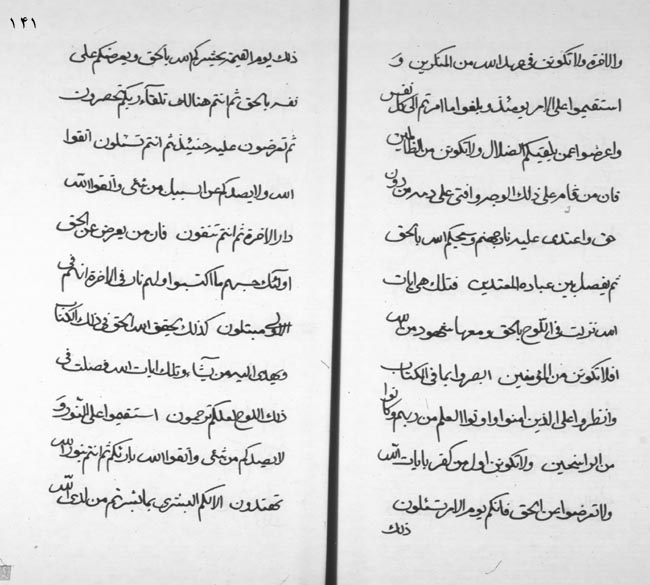 والاخرة ولا تكونن في عهد الله من المنكرين و
استقيموا على الامر يومئذ وبلغوا ما امرتم الى كل نفس
واعرضوا عمن يلقيكم الضلال ولا تكونن من الظالمين
فان من قام على ذلك الوجه وافتى على من دون
حق واعتدى عليه نار جهنم وسيحكم الله بالحق
ثم يفصل بين عباده المعتدين فتلك هي ايات
الله نزلت في اللوح بالحق ومعها شهود من الله
افلا تكونن من المؤمنين ابصروا بما في الكتاب
وانظروا على الذين امنوا واوتوا العلم من ربهم وكانوا
من الراسخين ولا تكونن اول من كفر بايات الله
ولا تعرضوا عن الحق فانكم يوم الامر تسئلون
ذلك
١٤١
ذلك يوم القيمة يحشركم الله بالحق ويعرضكم على
نفسه بالحق ثم انتم هنالك تلقاء ربكم تحضرون
ثم تعرضون عليه حينئذ ثم انتم تسئلون اتقوا
الله ولا يصدكم عن السبيل من شئ واتقوا الله
دار الاخرة ثم انتم تتقون فان من يعرض عن الحق
اولئك حبهم ما اكتسبوا ولهم نار في الاخرة انهم في
مبتلون كذلك يحقق الله الحق في ذلك الكتاب
ويهدى اليه من يشاء وتلك ايات الله فصلت في
ذلك اللوح لعلكم ترحمون استقيموا على النور و
لا يصدكم من شئ واتقوا الله بارئكم ثم انتم بنور الله
تهتدون الا لكم البشرى بما نسبتم من لدى الله